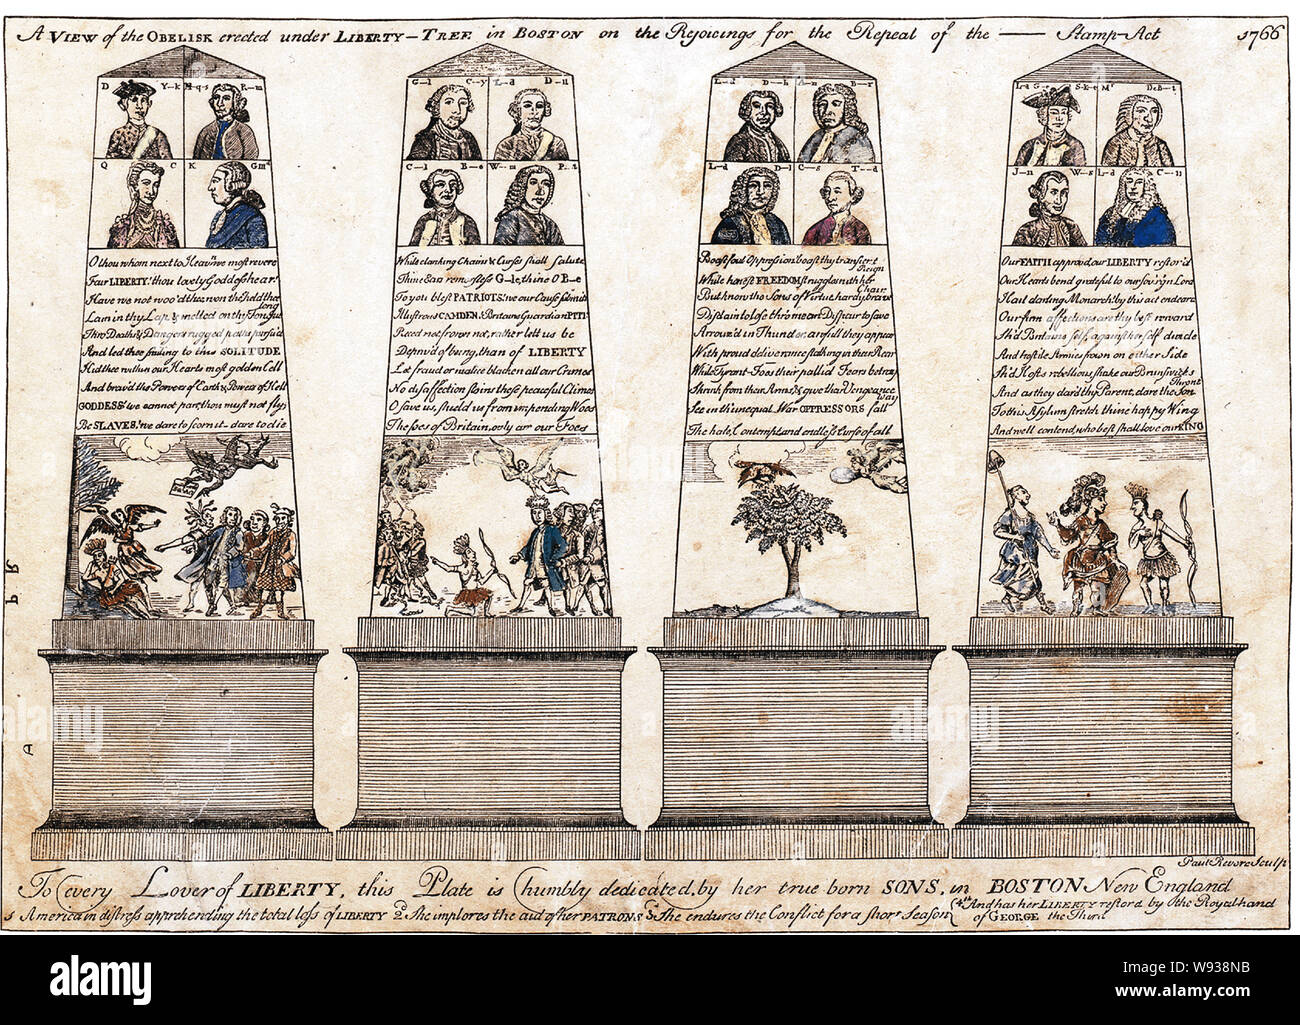 A VIEW of the OBELISK erected under LIBERTY-TREE in BOSTON on the Rejoicings for the Repeal of the — Stamp-Act 1766
D Y-k M-q-s R-m
Q C K G
O thou whom next to Heav'n we most revere
Fair LIBERTY! thou lovely Goddess hear!
Have we not woo'd thee, won thee, held thee long
Lain in thy Lap & melted on thy Tongue
Thro Deaths & Dangers rugged paths pursu'd
And led thee smiling to this SOLITUDE
Hid thee within our Hearts most golden Cell
And brav'd the Powers of Earth & Powers of Hell
GODDESS! we cannot part, thou must not fly,
Be SLAVES! we dare to scorn it—dare to die
G-l C-y L-d D-ll
C-l B-e W-m P-t
While clanking Chains & Curses shall salute
Thine Ears remorsless G-le, thine O B-e
To you blest PATRIOTS! we our Cause submit
Illustrous CAMDEN & Britains Guardian PITT
Recede not frown not, rather let us be
Depriv'd of being, than of LIBERTY
Let fraud or malice blacken all our Crimes
No disaffection stains these peaceful Climes
O save us, shield us from impending Woes
The foes of Britain, only are our Foes
L-d D-h A-n B-r
L-d D-l C-s T-d
Boast foul Oppression! boast thy transient Reign
While honest FREEDOM struggles with her Chain
But know the Sons of Virtue, hardy, brave
Disdain to lose thro mean Dispair to save
Arrow'd in Thunder, awfull they appear
With proud deliverance stalking in their Rear
While Tyrant-Foes their pallid Fears betray
Shrink from their Arms, & give their Vengeance way
See in th' unequal War OPPRESSORS fall
The hate, Contempt, and endless Curse of all
L-d G- S-k-e Mr DeB-t
J-n W-s L-d C-n
Our FAITH approv'd, our LIBERTY restor'd
Our Hearts bend grateful to our sov'rgn Lord
Hail darling Monarch! by this act endear'd
Our firm affections are thy best reward
Sh'd Britains self, against herself divide
And hostile Armies frown on either Side
Sh'd Hosts rebellious, shake our Brunswick's Throne
And as they dar'd thy Parent, dare the Son
To this Asylum stretch thine happy Wing
And we'll contend, who best shall love our KING
Paul Revere Sculp
To every Lover of LIBERTY, this Plate is humbly dedicated, by her true born SONS, in BOSTON New England
s America in distress apprehending the total loss of LIBERTY 2d She implores the aid of her PATRONS & She endures the Conflict for a short Season 4th And has her LIBERTY restord by the Royal hand
of GEORGE the Third
alamy
alamy
Image ID: W938NB
www.alamy.com